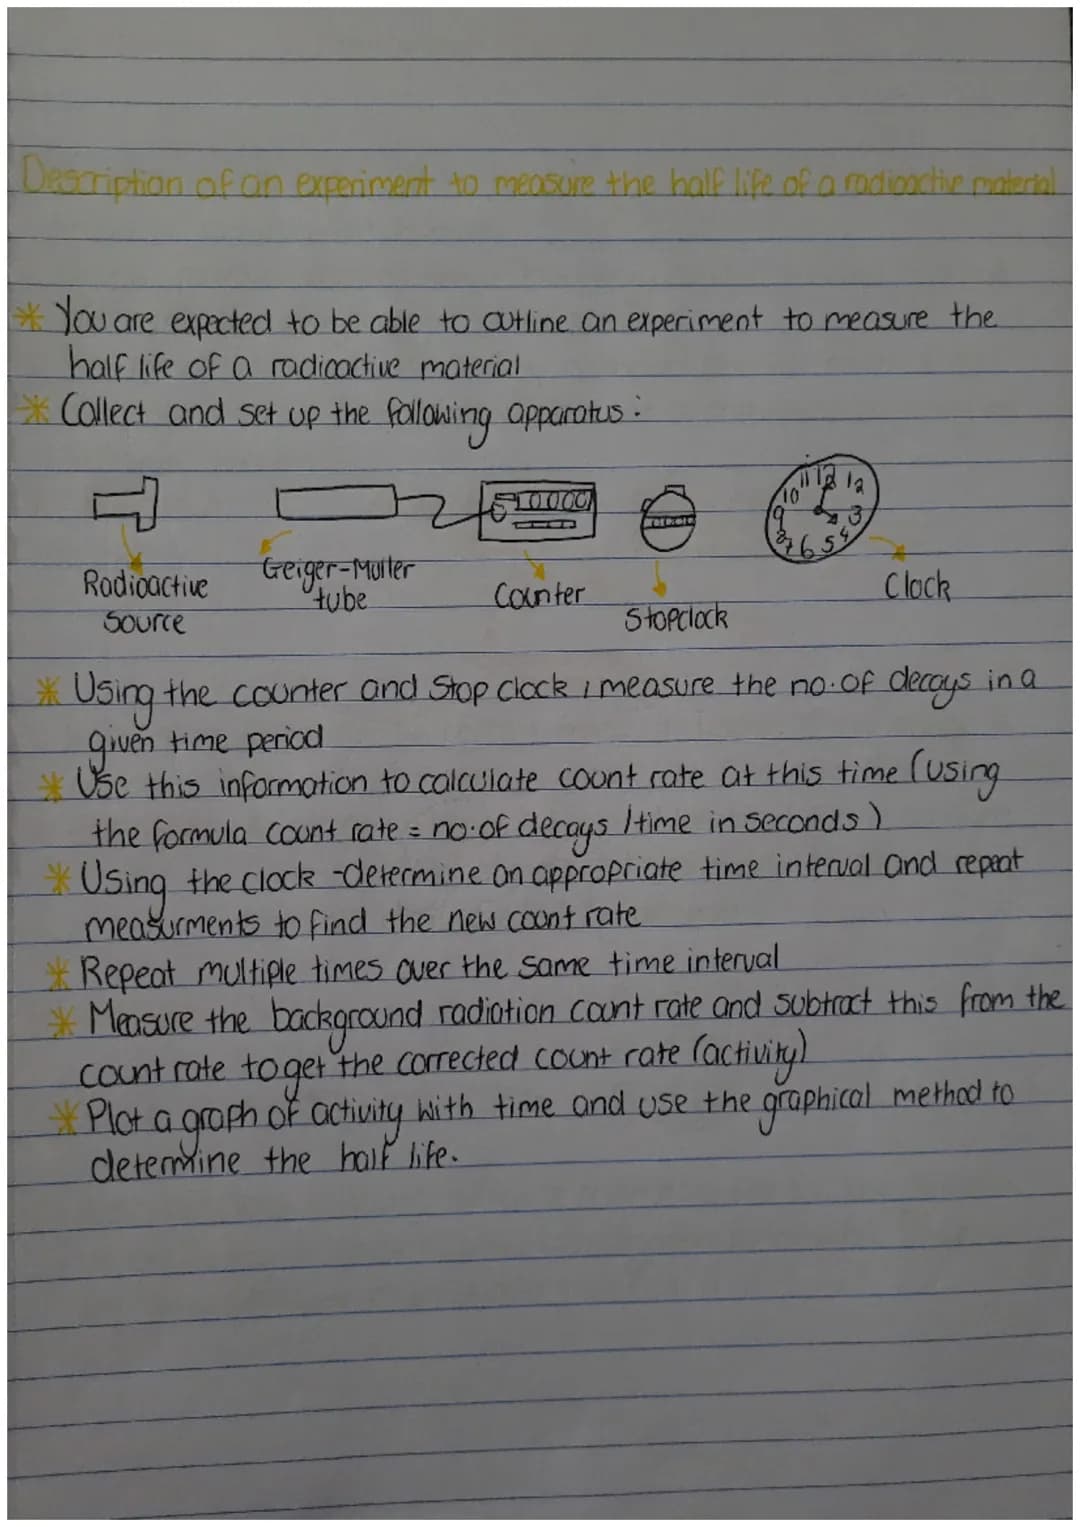 Description of an experiment to measure the half life of a radioactive material
* You are expected to be able to outline an experiment to measure the
half life of a radioactive material
* Collect and set up the following apparatus:
Radioactive
Source
Geiger-Muller
tube
Counter
Stopclock
11 12 12
10
9 3
8 7 6 5 4
Clock
* Using the counter and Stop clock, measure the no. of decays in a
given time period
* Use this information to calculate count rate at this time (using
the formula count rate = no. of decays / time in seconds)
* Using the clock - determine an appropriate time interval and repeat
measurments to find the new count rate
* Repeat multiple times over the same time interval
* Measure the background radiation count rate and subtract this from the
count rate to get the corrected count rate (activity)
* Plot a graph of activity with time and use the graphical method to
determine the half life.